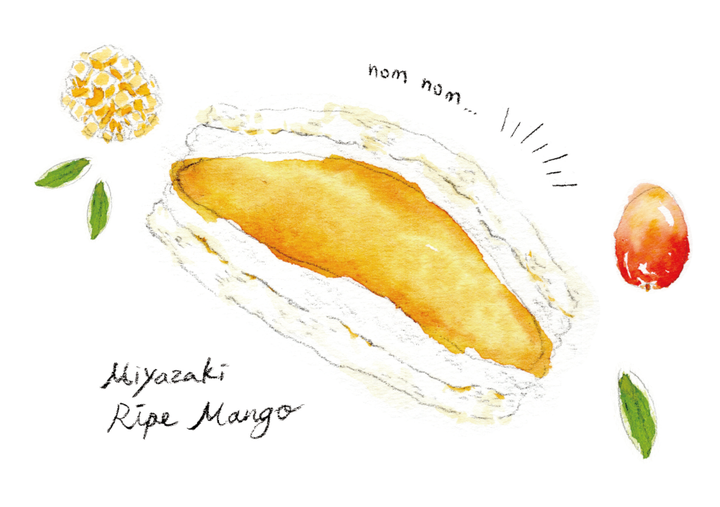 nom nom...
Miyazaki
Ripe Mango